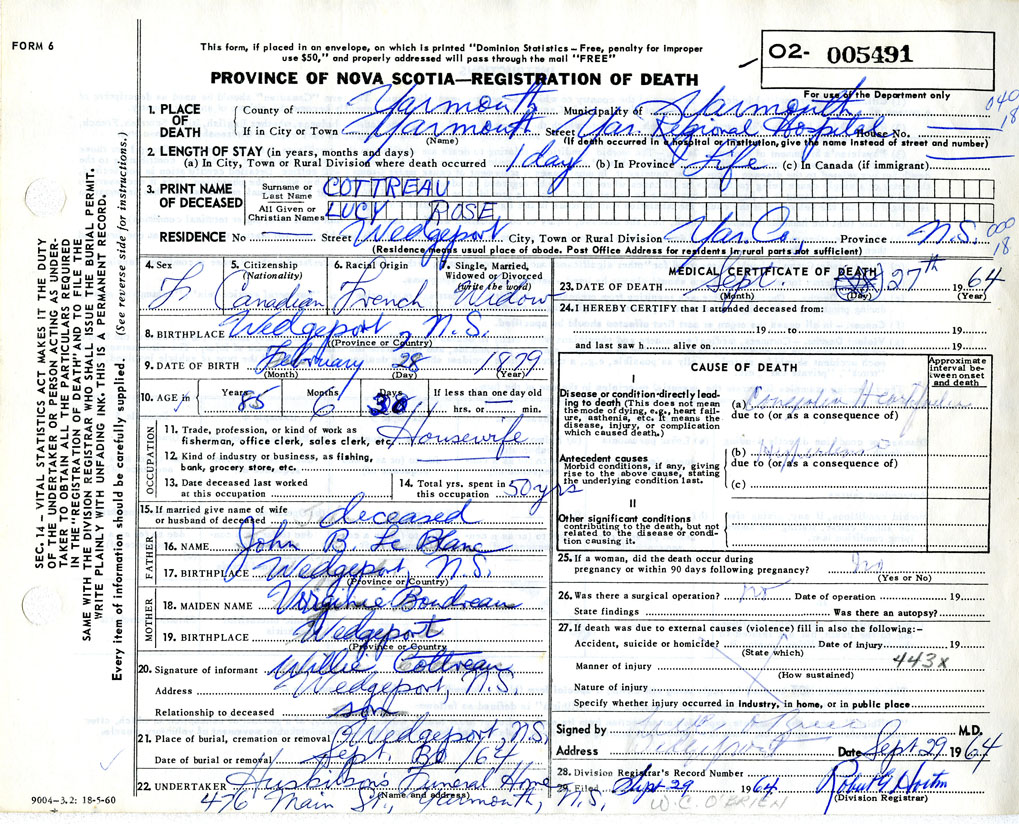 FORM 6
This form, if placed in an envelope, on which is printed "Dominion Statistics – Free, penalty for improper
use $50," and properly addressed will pass through the mail "FREE"
PROVINCE OF NOVA SCOTIA—REGISTRATION OF DEATH
02- 005491
For use of the Department only
040
18
1. PLACE OF DEATH County of Yarmouth Municipality of Yarmouth
If in City or Town Yarmouth Street Yar. Regional Hospital House No.
(Name) (If death occurred in a hospital or institution, give the name instead of street and number)
2. LENGTH OF STAY (in years, months and days)
(a) In City, Town or Rural Division where death occurred 1 day (b) In Province Life (c) In Canada (if immigrant)
3. PRINT NAME OF DECEASED Surname or Last Name COTTREAU
All Given or Christian Names LUCY ROSE
RESIDENCE No Street Wedgeport City, Town or Rural Division Yar. Co. Province N.S.
(Residence means usual place of abode. Post Office Address for residents in rural parts not sufficient)
000
18
4. Sex F
5. Citizenship (Nationality) Canadian
6. Racial Origin French
7. Single, Married, Widowed or Divorced (write the word) Widow
8. BIRTHPLACE Wedgeport, N.S.
(Province or Country)
9. DATE OF BIRTH February 28 1879
(Month) (Day) (Year)
10. AGE in Years 85 Months 6 Days 30 If less than one day old hrs. or min.
OCCUPATION
11. Trade, profession, or kind of work as fisherman, office clerk, sales clerk, etc. Housewife
12. Kind of industry or business, as fishing, bank, grocery store, etc.
13. Date deceased last worked at this occupation
14. Total yrs. spent in this occupation 50 yrs
15. If married give name of wife or husband of deceased deceased
FATHER
16. NAME John B. Le Blanc
17. BIRTHPLACE Wedgeport, N.S.
(Province or Country)
MOTHER
18. MAIDEN NAME Virginie Boudreau
19. BIRTHPLACE Wedgeport
(Province or Country)
20. Signature of informant Willie Cottreau
Address Wedgeport, N.S.
Relationship to deceased son
21. Place of burial, cremation or removal Wedgeport, N.S.
Date of burial or removal Sept. 30/64
22. UNDERTAKER Huskilson's Funeral Home
(Name and address)
476 Main St., Yarmouth, N.S.
MEDICAL CERTIFICATE OF DEATH
23. DATE OF DEATH Sept. 27th 1964
(Month) (Day) (Year)
24. I HEREBY CERTIFY that I attended deceased from:
19 to 19
and last saw h alive on 19
CAUSE OF DEATH
Approximate interval between onset and death
I
Disease or condition directly leading to death (This does not mean the mode of dying, e.g., heart failure, asthenia, etc. It means the disease, injury, or complication which caused death.)
(a) Congestive Heart failure
due to (or as a consequence of)
Antecedent causes
Morbid conditions, if any, giving rise to the above cause, stating the underlying condition last.
(b) Hypertension
due to (or as a consequence of)
(c)
II
Other significant conditions contributing to the death, but not related to the disease or condition causing it.
25. If a woman, did the death occur during pregnancy or within 90 days following pregnancy? no
(Yes or No)
26. Was there a surgical operation? no Date of operation 19
State findings Was there an autopsy?
27. If death was due to external causes (violence) fill in also the following:–
Accident, suicide or homicide? Date of injury 19
(State which)
443x
Manner of injury
(How sustained)
Nature of injury
Specify whether injury occurred in industry, in home, or in public place
Signed by O'Brien M.D.
Address Date Sept. 29 1964
28. Division Registrar's Record Number
29. Filed Sept 29 1964 Robert G Horton
(Division Registrar)
W.C. O'BRIEN
9004–3.2: 18-5-60
SEC. 14 – VITAL STATISTICS ACT MAKES IT THE DUTY
OF THE UNDERTAKER OR PERSON ACTING AS UNDER-
TAKER TO OBTAIN ALL THE PARTICULARS REQUIRED
IN THE "REGISTRATION OF DEATH" AND TO FILE THE
SAME WITH THE DIVISION REGISTRAR WHO SHALL ISSUE THE BURIAL PERMIT.
WRITE PLAINLY WITH UNFADING INK. THIS IS A PERMANENT RECORD.
Every item of information should be carefully supplied. (See reverse side for instructions.)